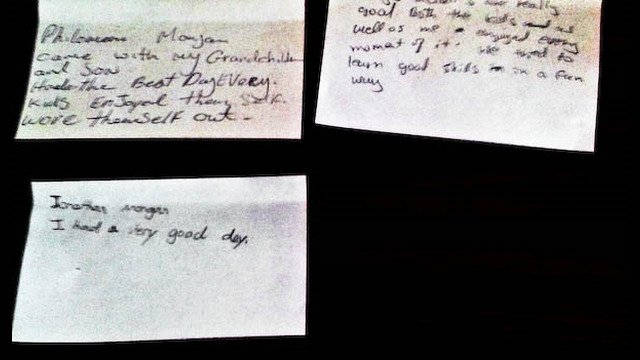 Philomena Morgan
came with my Grandchildren
and Son
Had the Best Day Every.
Kids Enjoyal them Self.
wore themself out.
good both the kids and as
well as me & enjoyed every
moment of it. We need to
learn good skills in a fun
way
Jonathan Morgan
I had a very good day.